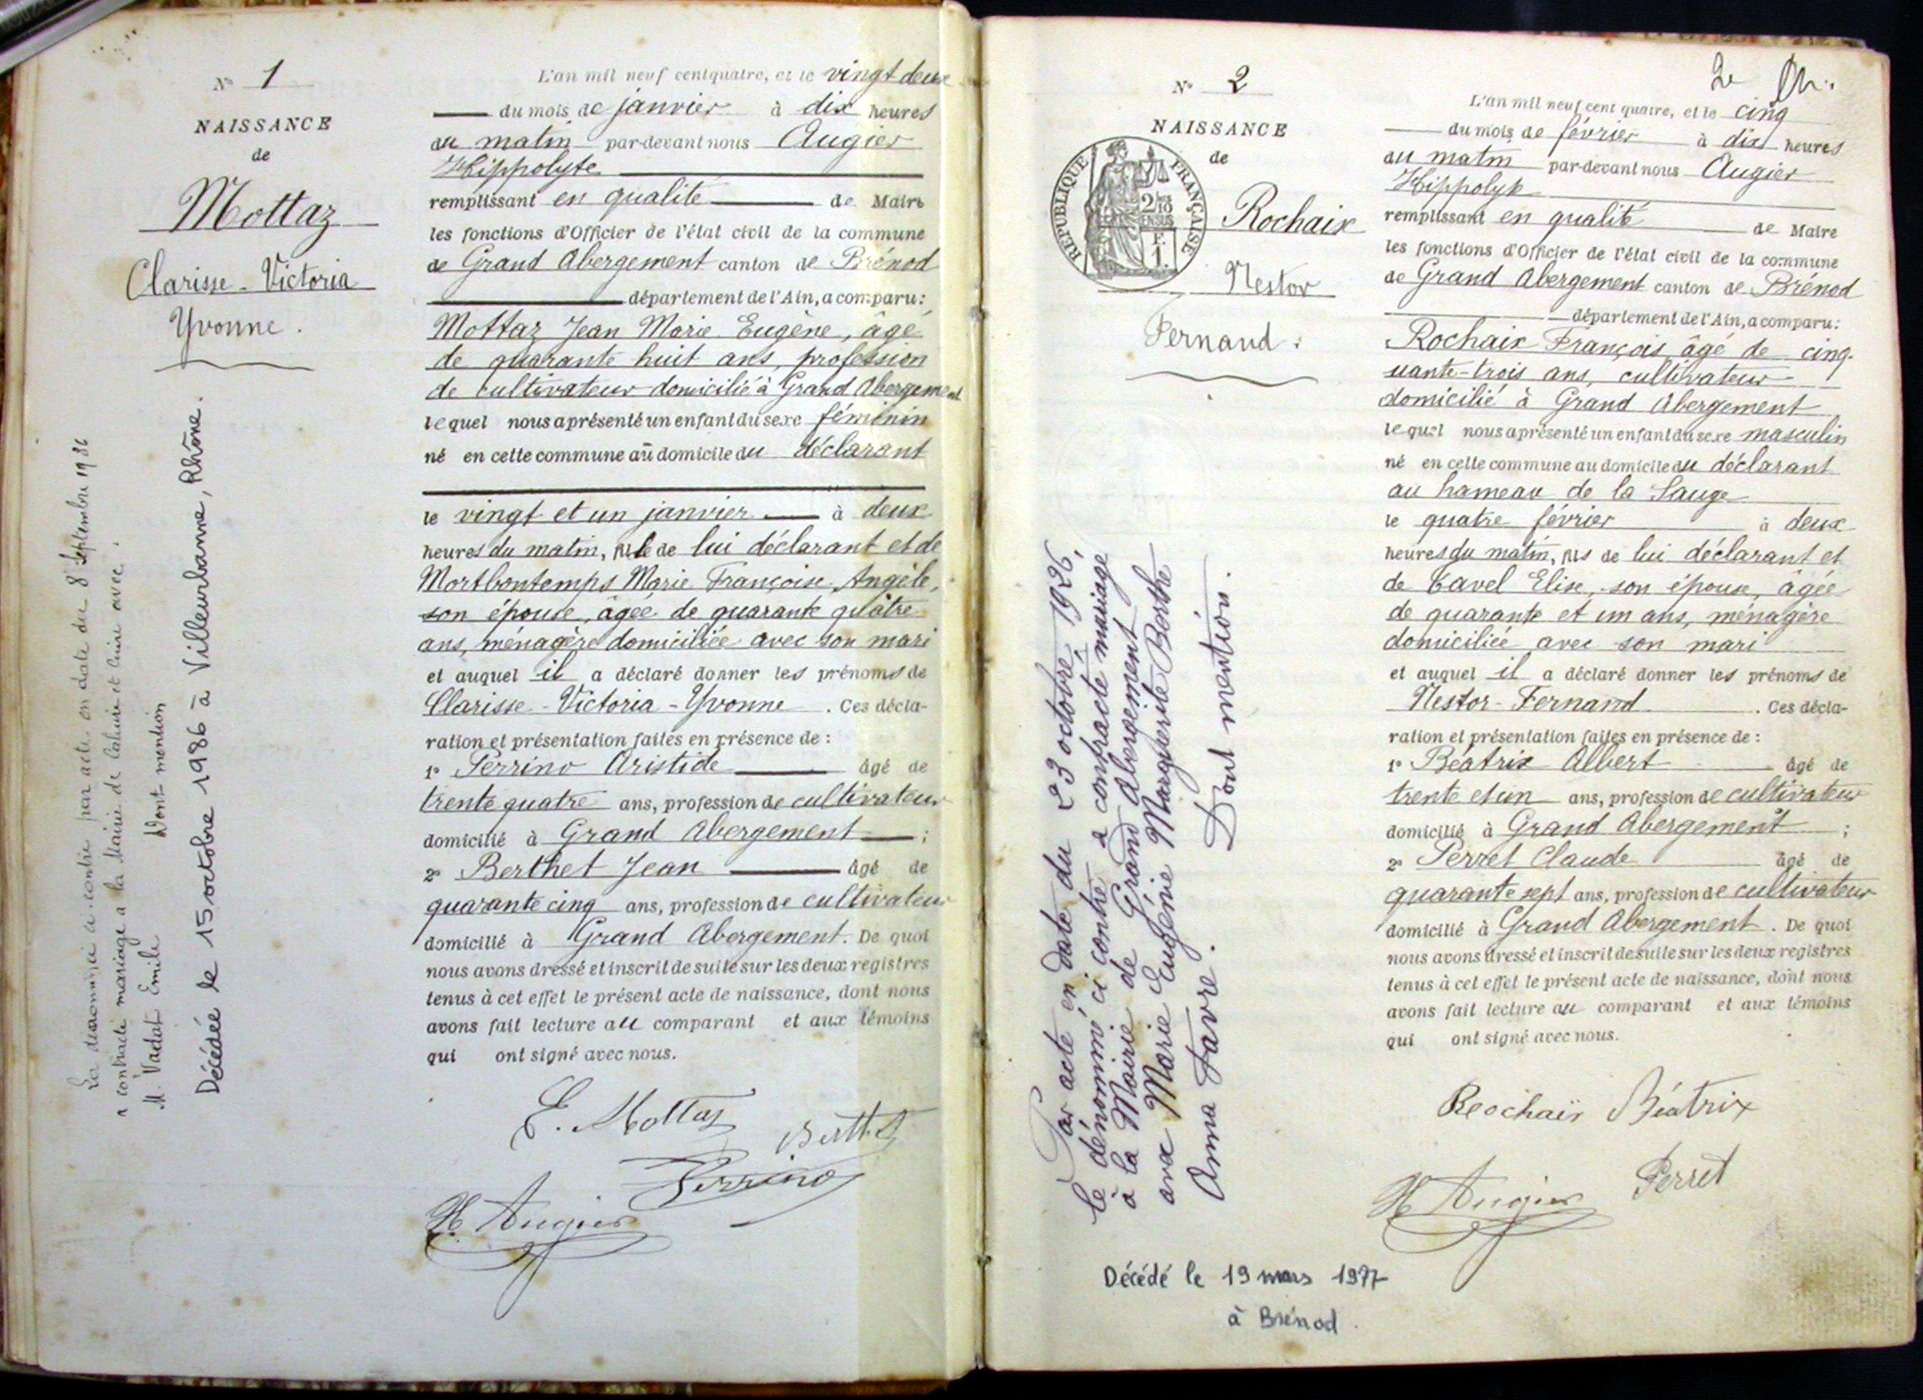 N° 1
NAISSANCE
de
Mottaz
Clarisse - Victoria
Yvonne.
La dénommée ci contre par acte en date du 8 Septembre 19
a contracté mariage à la Mairie de Caluire et Cuire avec :
M. Vadat Emile
Dont mention
Décédée le 15 octobre 1986 à Villeurbanne, Rhône.
L'an mil neuf cent quatre, et le vingt deux
du mois de janvier à dix heures
du matin par-devant nous Augier
Hippolyte
remplissant en qualité de Maire
les fonctions d'Officier de l'état civil de la commune
de Grand Abergement canton de Brénod
département de l'Ain, a comparu :
Mottaz Jean Marie Eugène, âgé
de quarante huit ans, profession
de cultivateur domicilié à Grand Abergement
lequel nous a présenté un enfant du sexe féminin
né en cette commune au domicile du déclarant
le vingt et un janvier à deux
heures du matin, fille de lui déclarant et de
Mortbontemps Marie Françoise Angèle,
son épouse, âgée de quarante quatre
ans, ménagère domiciliée avec son mari
et auquel il a déclaré donner les prénoms de
Clarisse - Victoria - Yvonne . Ces décla-
ration et présentation faites en présence de :
1° Perrino Aristide âgé de
trente quatre ans, profession de cultivateur
domicilié à Grand Abergement ;
2° Berthet Jean âgé de
quarante cinq ans, profession de cultivateur
domicilié à Grand Abergement. De quoi
nous avons dressé et inscrit de suite sur les deux registres
tenus à cet effet le présent acte de naissance, dont nous
avons fait lecture au comparant et aux témoins
qui ont signé avec nous.
E. Mottaz
Berthet
Perrino
H. Augier
2e
N° 2
NAISSANCE
de
RÉPUBLIQUE FRANÇAISE
Rochaix
Nestor
Fernand.
Par acte en date du 23 octobre 1926,
le dénommé ci contre a contracté mariage
à la Mairie de Grand Abergement
avec Marie Eugénie Marguerite Berthe
Anna Favre. Dont mention.
Décédé le 19 mars 1977
à Brénod.
L'an mil neuf cent quatre, et le cinq
du mois de février à dix heures
du matin par-devant nous Augier
Hippolyte
remplissant en qualité de Maire
les fonctions d'Officier de l'état civil de la commune
de Grand Abergement canton de Brénod
département de l'Ain, a comparu :
Rochaix François âgé de cinq-
uante-trois ans, cultivateur
domicilié à Grand Abergement
lequel nous a présenté un enfant du sexe masculin
né en cette commune au domicile du déclarant
au hameau de la Sauge
le quatre février à deux
heures du matin, fils de lui déclarant et
de Cavel Elise, son épouse, âgée
de quarante et un ans, ménagère
domiciliée avec son mari
et auquel il a déclaré donner les prénoms de
Nestor - Fernand . Ces décla-
ration et présentation faites en présence de :
1° Béatrix Albert âgé de
trente et un ans, profession de cultivateur
domicilié à Grand Abergement ;
2° Perret Claude âgé de
quarante sept ans, profession de cultivateur
domicilié à Grand Abergement . De quoi
nous avons dressé et inscrit de suite sur les deux registres
tenus à cet effet le présent acte de naissance, dont nous
avons fait lecture au comparant et aux témoins
qui ont signé avec nous.
Rochaix Béatrix
H Augier Perret